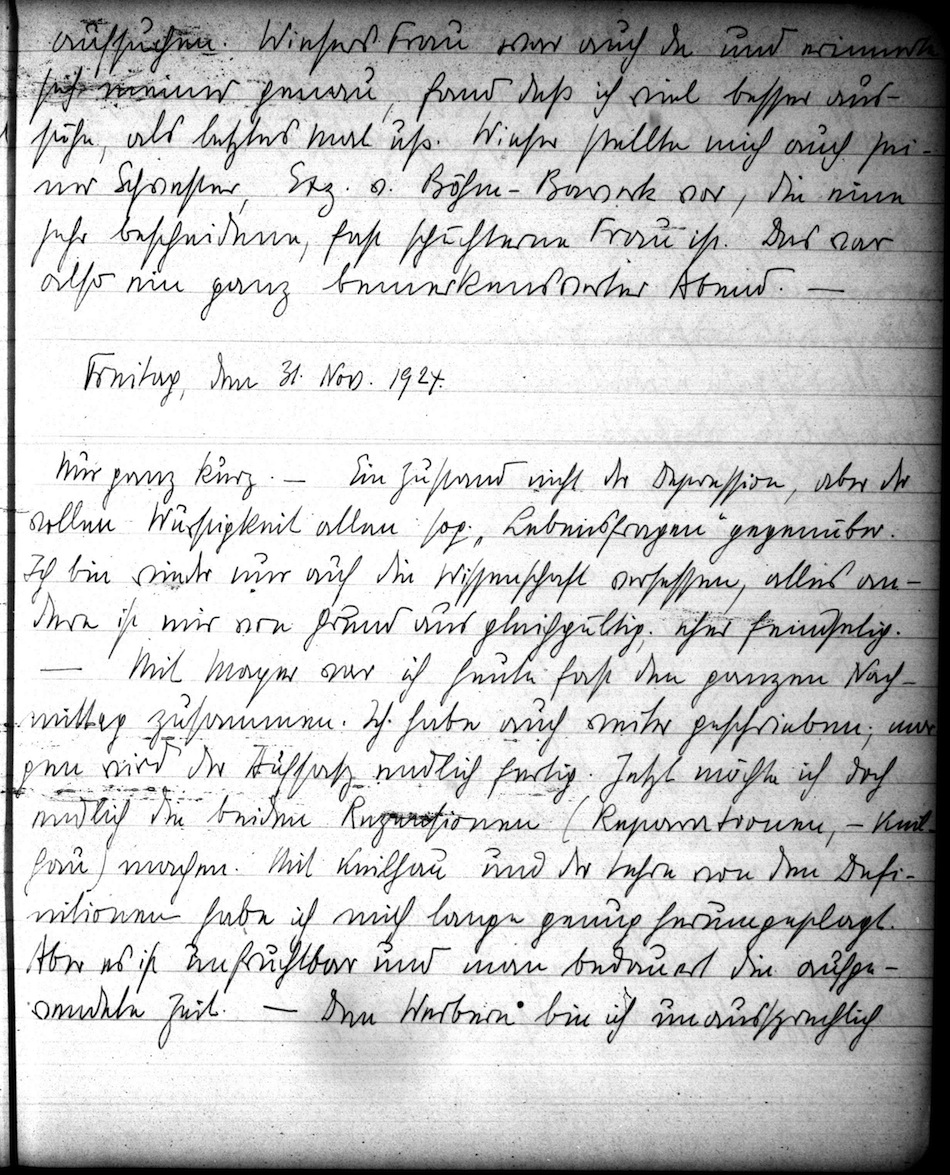 aufsuchen. Wiesers Frau war auch da und erinnerte
sich meiner genau, fand daß ich viel besser aus-
sähe, als letztes Mal usf. Wieser stellte mich auch sei-
ner Schwester, Exz. v. Böhm-Bawerk vor, die eine
sehr bescheidene, fast schüchterne Frau ist. Das war
also ein ganz bemerkenswerter Abend. —
Freitag, den 31. Nov. 1924.
Nur ganz kurz. — Ein Zustand nicht der Depression, aber der
vollen Wurstigkeit allen sog. „Lebensfragen" gegenüber.
Ich bin wieder nur auf die Wissenschaft versessen, alles an-
dere ist mir von Grund aus gleichgültig, eher feindselig.
— Mit Mayer war ich heute fast den ganzen Nach-
mittag zusammen. Ich habe auch weiter geschrieben; mor-
gen wird der Aufsatz endlich fertig. Jetzt möchte ich doch
endlich die beiden Rezensionen (Reparationen, – Keil-
hau) machen. Mit Keilhau und der Lehre von den Defi-
nitionen habe ich mich lange genug herumgeplagt.
Aber es ist unfruchtbar und man bedauert die aufge-
wendete Zeit. — Den Weibern bin ich unaussprechlich